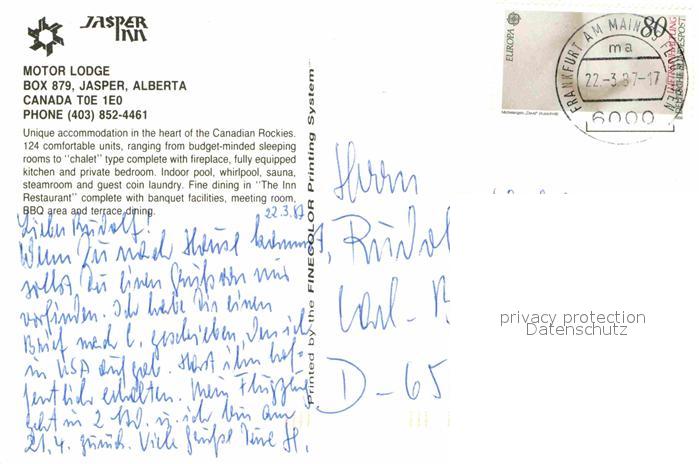 JASPER INN
MOTOR LODGE
BOX 879, JASPER, ALBERTA
CANADA T0E 1E0
PHONE (403) 852-4461
Unique accommodation in the heart of the Canadian Rockies.
124 comfortable units, ranging from budget-minded sleeping
rooms to "chalet" type complete with fireplace, fully equipped
kitchen and private bedroom. Indoor pool, whirlpool, sauna,
steamroom and guest coin laundry. Fine dining in "The Inn
Restaurant" complete with banquet facilities, meeting room,
BBQ area and terrace dining.
22.3.87
Lieber Rudolf!
Wenn Du nach Hause kommst,
sollst Du einen Gruß von mir
vorfinden. Ich habe Dir einen
Brief nach C. geschrieben, den ich
in USA aufgab. Hast ihn hof-
fentlich erhalten. Mein Flugzeug
geht in 2 Std. u. ich bin am
21.4. zurück. Viele Grüße Deine H.
Printed by the FINECOLOR Printing System
EUROPA
80
DEUTSCHE BUNDESPOST
FRANKFURT AM MAIN
ma
22.-3.87-17
6000
Herrn
Rudol
Carl-
D-65
privacy protection
Datenschutz